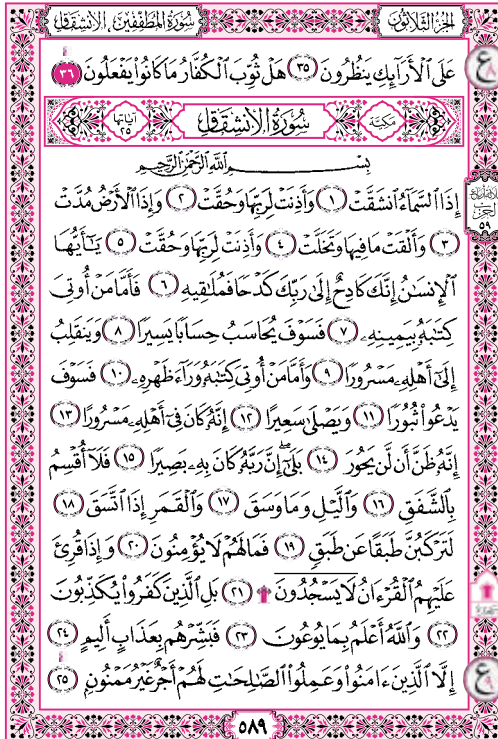 الجزء الثلاثون
سورة المطففين . الانشقاق
عَلَى ٱلْأَرَآئِكِ يَنظُرُونَ ٣٥ هَلْ ثُوِّبَ ٱلْكُفَّارُ مَا كَانُوا۟ يَفْعَلُونَ ٣٦
مكية سورة الانشقاق آياتها ٢٥
بِسْمِ ٱللَّهِ ٱلرَّحْمَٰنِ ٱلرَّحِيمِ
إِذَا ٱلسَّمَآءُ ٱنشَقَّتْ ١ وَأَذِنَتْ لِرَبِّهَا وَحُقَّتْ ٢ وَإِذَا ٱلْأَرْضُ مُدَّتْ
٣ وَأَلْقَتْ مَا فِيهَا وَتَخَلَّتْ ٤ وَأَذِنَتْ لِرَبِّهَا وَحُقَّتْ ٥ يَٰٓأَيُّهَا
ٱلْإِنسَٰنُ إِنَّكَ كَادِحٌ إِلَىٰ رَبِّكَ كَدْحًا فَمُلَٰقِيهِ ٦ فَأَمَّا مَنْ أُوتِىَ
كِتَٰبَهُۥ بِيَمِينِهِۦ ٧ فَسَوْفَ يُحَاسَبُ حِسَابًا يَسِيرًا ٨ وَيَنقَلِبُ
إِلَىٰٓ أَهْلِهِۦ مَسْرُورًا ٩ وَأَمَّا مَنْ أُوتِىَ كِتَٰبَهُۥ وَرَآءَ ظَهْرِهِۦ ١٠ فَسَوْفَ
يَدْعُوا۟ ثُبُورًا ١١ وَيَصْلَىٰ سَعِيرًا ١٢ إِنَّهُۥ كَانَ فِىٓ أَهْلِهِۦ مَسْرُورًا ١٣
إِنَّهُۥ ظَنَّ أَن لَّن يَحُورَ ١٤ بَلَىٰٓ إِنَّ رَبَّهُۥ كَانَ بِهِۦ بَصِيرًا ١٥ فَلَآ أُقْسِمُ
بِٱلشَّفَقِ ١٦ وَٱلَّيْلِ وَمَا وَسَقَ ١٧ وَٱلْقَمَرِ إِذَا ٱتَّسَقَ ١٨
لَتَرْكَبُنَّ طَبَقًا عَن طَبَقٍ ١٩ فَمَا لَهُمْ لَا يُؤْمِنُونَ ٢٠ وَإِذَا قُرِئَ
عَلَيْهِمُ ٱلْقُرْءَانُ لَا يَسْجُدُونَ ۩ ٢١ بَلِ ٱلَّذِينَ كَفَرُوا۟ يُكَذِّبُونَ
٢٢ وَٱللَّهُ أَعْلَمُ بِمَا يُوعُونَ ٢٣ فَبَشِّرْهُم بِعَذَابٍ أَلِيمٍ ٢٤
إِلَّا ٱلَّذِينَ ءَامَنُوا۟ وَعَمِلُوا۟ ٱلصَّٰلِحَٰتِ لَهُمْ أَجْرٌ غَيْرُ مَمْنُونٍۭ ٢٥
٥٨٩
ع
٥٩
ع